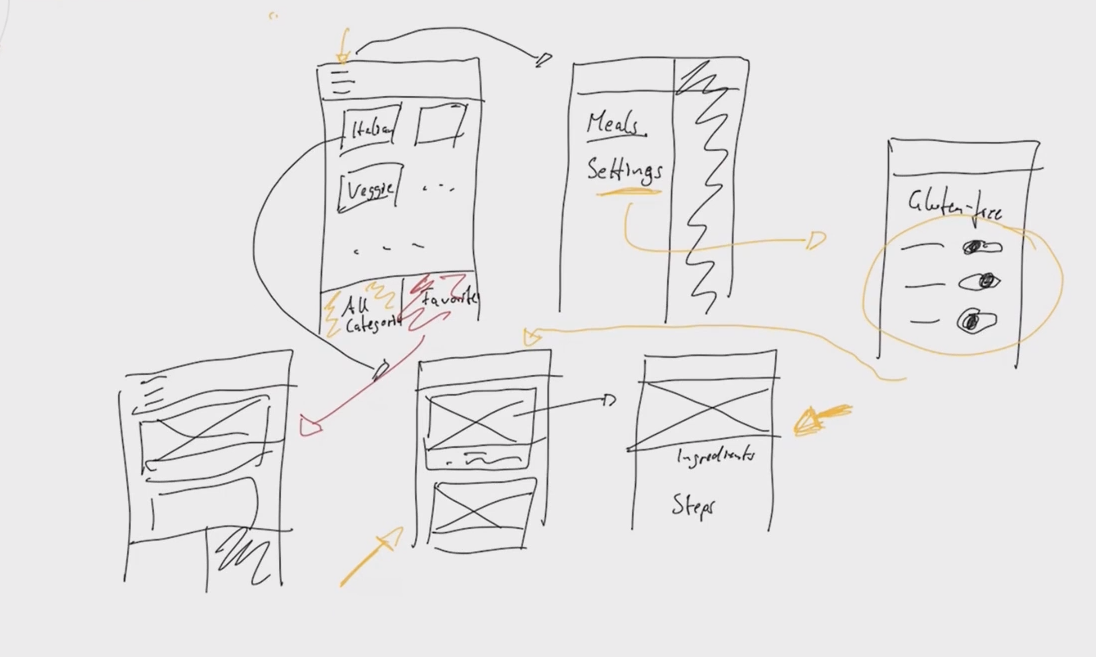 Italian
Veggie
...
...
All
Categories
Favorite
Meals
Settings
Gluten-free
Ingredients
Steps